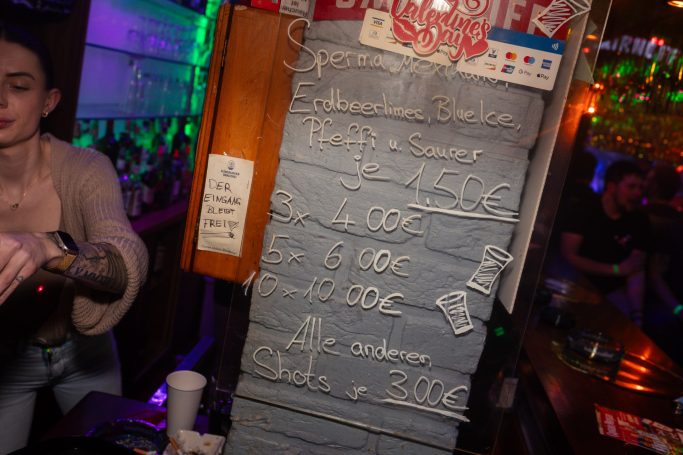 Valentines
Day
VISA
Pay
Pay
Sperma, Mexikaner,
Erdbeerlimes, Blue Ice,
Pfeffi u. Saurer
je 1,50€
3x 4,00€
5x 6,00€
10x 10,00€
Alle anderen
Shots je 3,00€
DER
EINGANG
BLEIBT
FREI